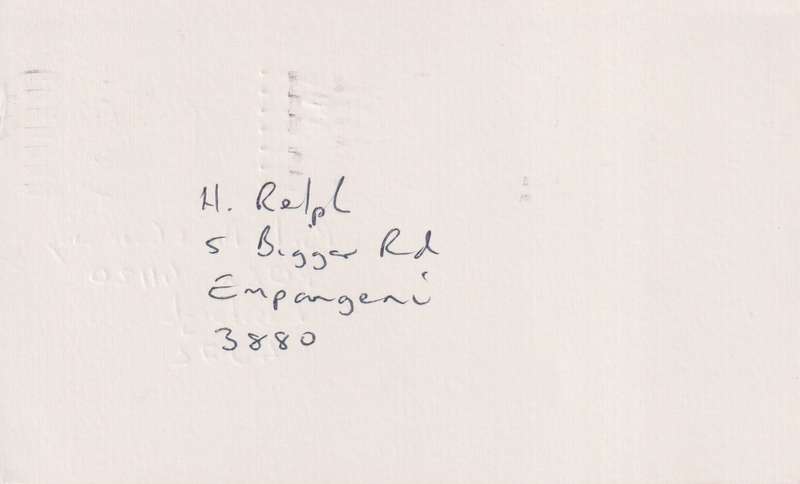 H. Relph
5 Biggar Rd
Empangeni
3880